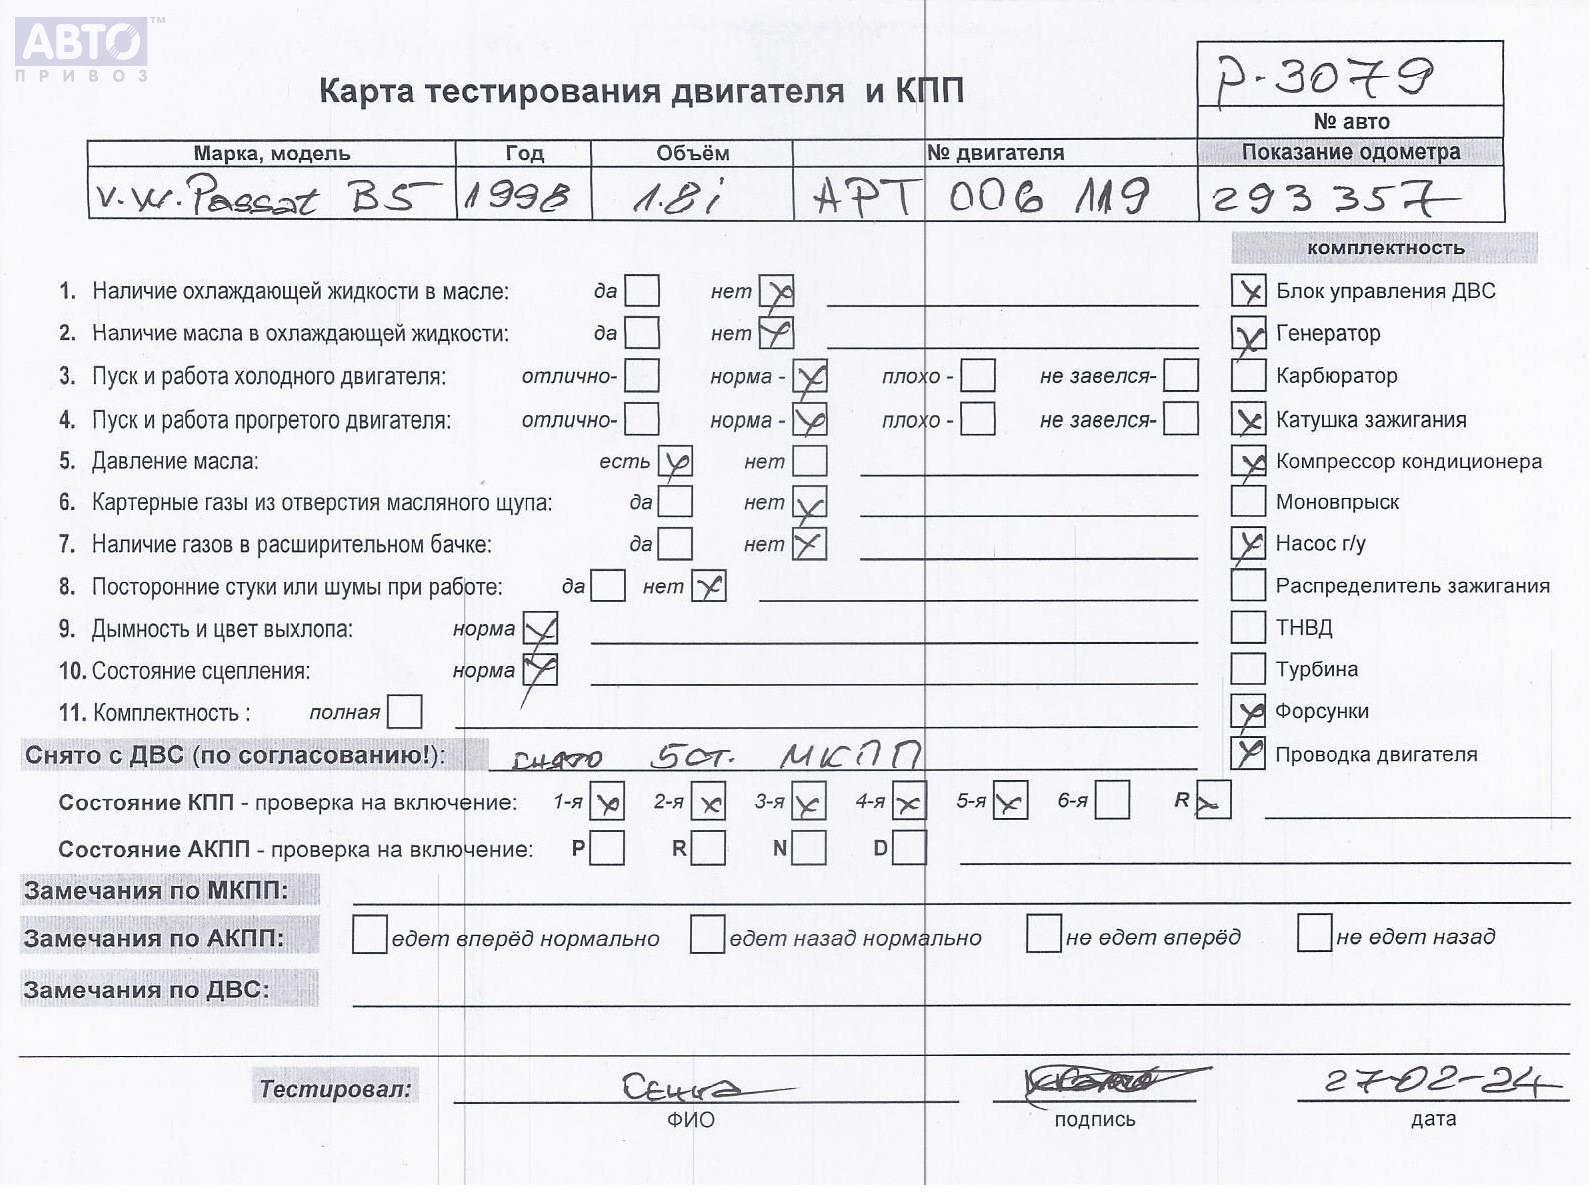 АВТО™
ПРИВОЗ
Карта тестирования двигателя и КПП
Р-3079
№ авто
Марка, модель Год Объём № двигателя Показание одометра
V.W. Passat B5 1998 1.8i APT 006 119 293 357
комплектность
1. Наличие охлаждающей жидкости в масле: да нет Блок управления ДВС
2. Наличие масла в охлаждающей жидкости: да нет Генератор
3. Пуск и работа холодного двигателя: отлично- норма - плохо - не завелся- Карбюратор
4. Пуск и работа прогретого двигателя: отлично- норма - плохо - не завелся- Катушка зажигания
5. Давление масла: есть нет Компрессор кондиционера
6. Картерные газы из отверстия масляного щупа: да нет Моновпрыск
7. Наличие газов в расширительном бачке: да нет Насос г/у
8. Посторонние стуки или шумы при работе: да нет Распределитель зажигания
9. Дымность и цвет выхлопа: норма ТНВД
10. Состояние сцепления: норма Турбина
11. Комплектность : полная Форсунки
Снято с ДВС (по согласованию!): снято 5ст. МКПП Проводка двигателя
Состояние КПП - проверка на включение: 1-я 2-я 3-я 4-я 5-я 6-я R
Состояние АКПП - проверка на включение: P R N D
Замечания по МКПП:
Замечания по АКПП: едет вперёд нормально едет назад нормально не едет вперёд не едет назад
Замечания по ДВС:
Тестировал: Сенна 27-02-24
ФИО подпись дата